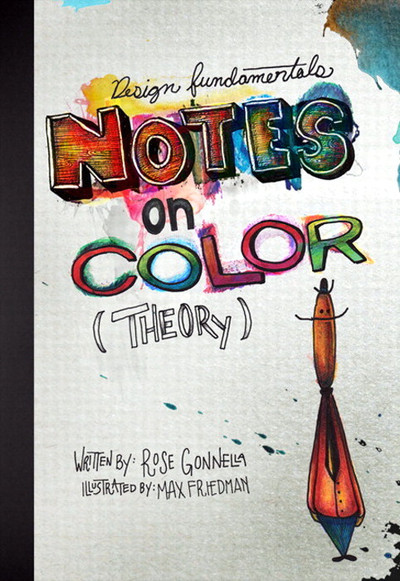 Design fundamentals
NOTES
on
COLOR
(THEORY)
WRITTEN BY: ROSE GONNELLA
ILLUSTRATED BY: MAX FRIEDMAN